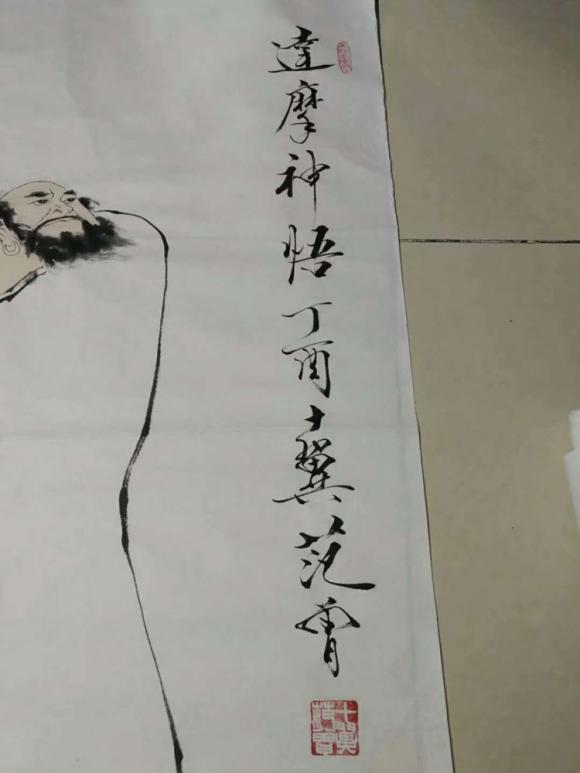 達摩神悟丁酉十翼范曾